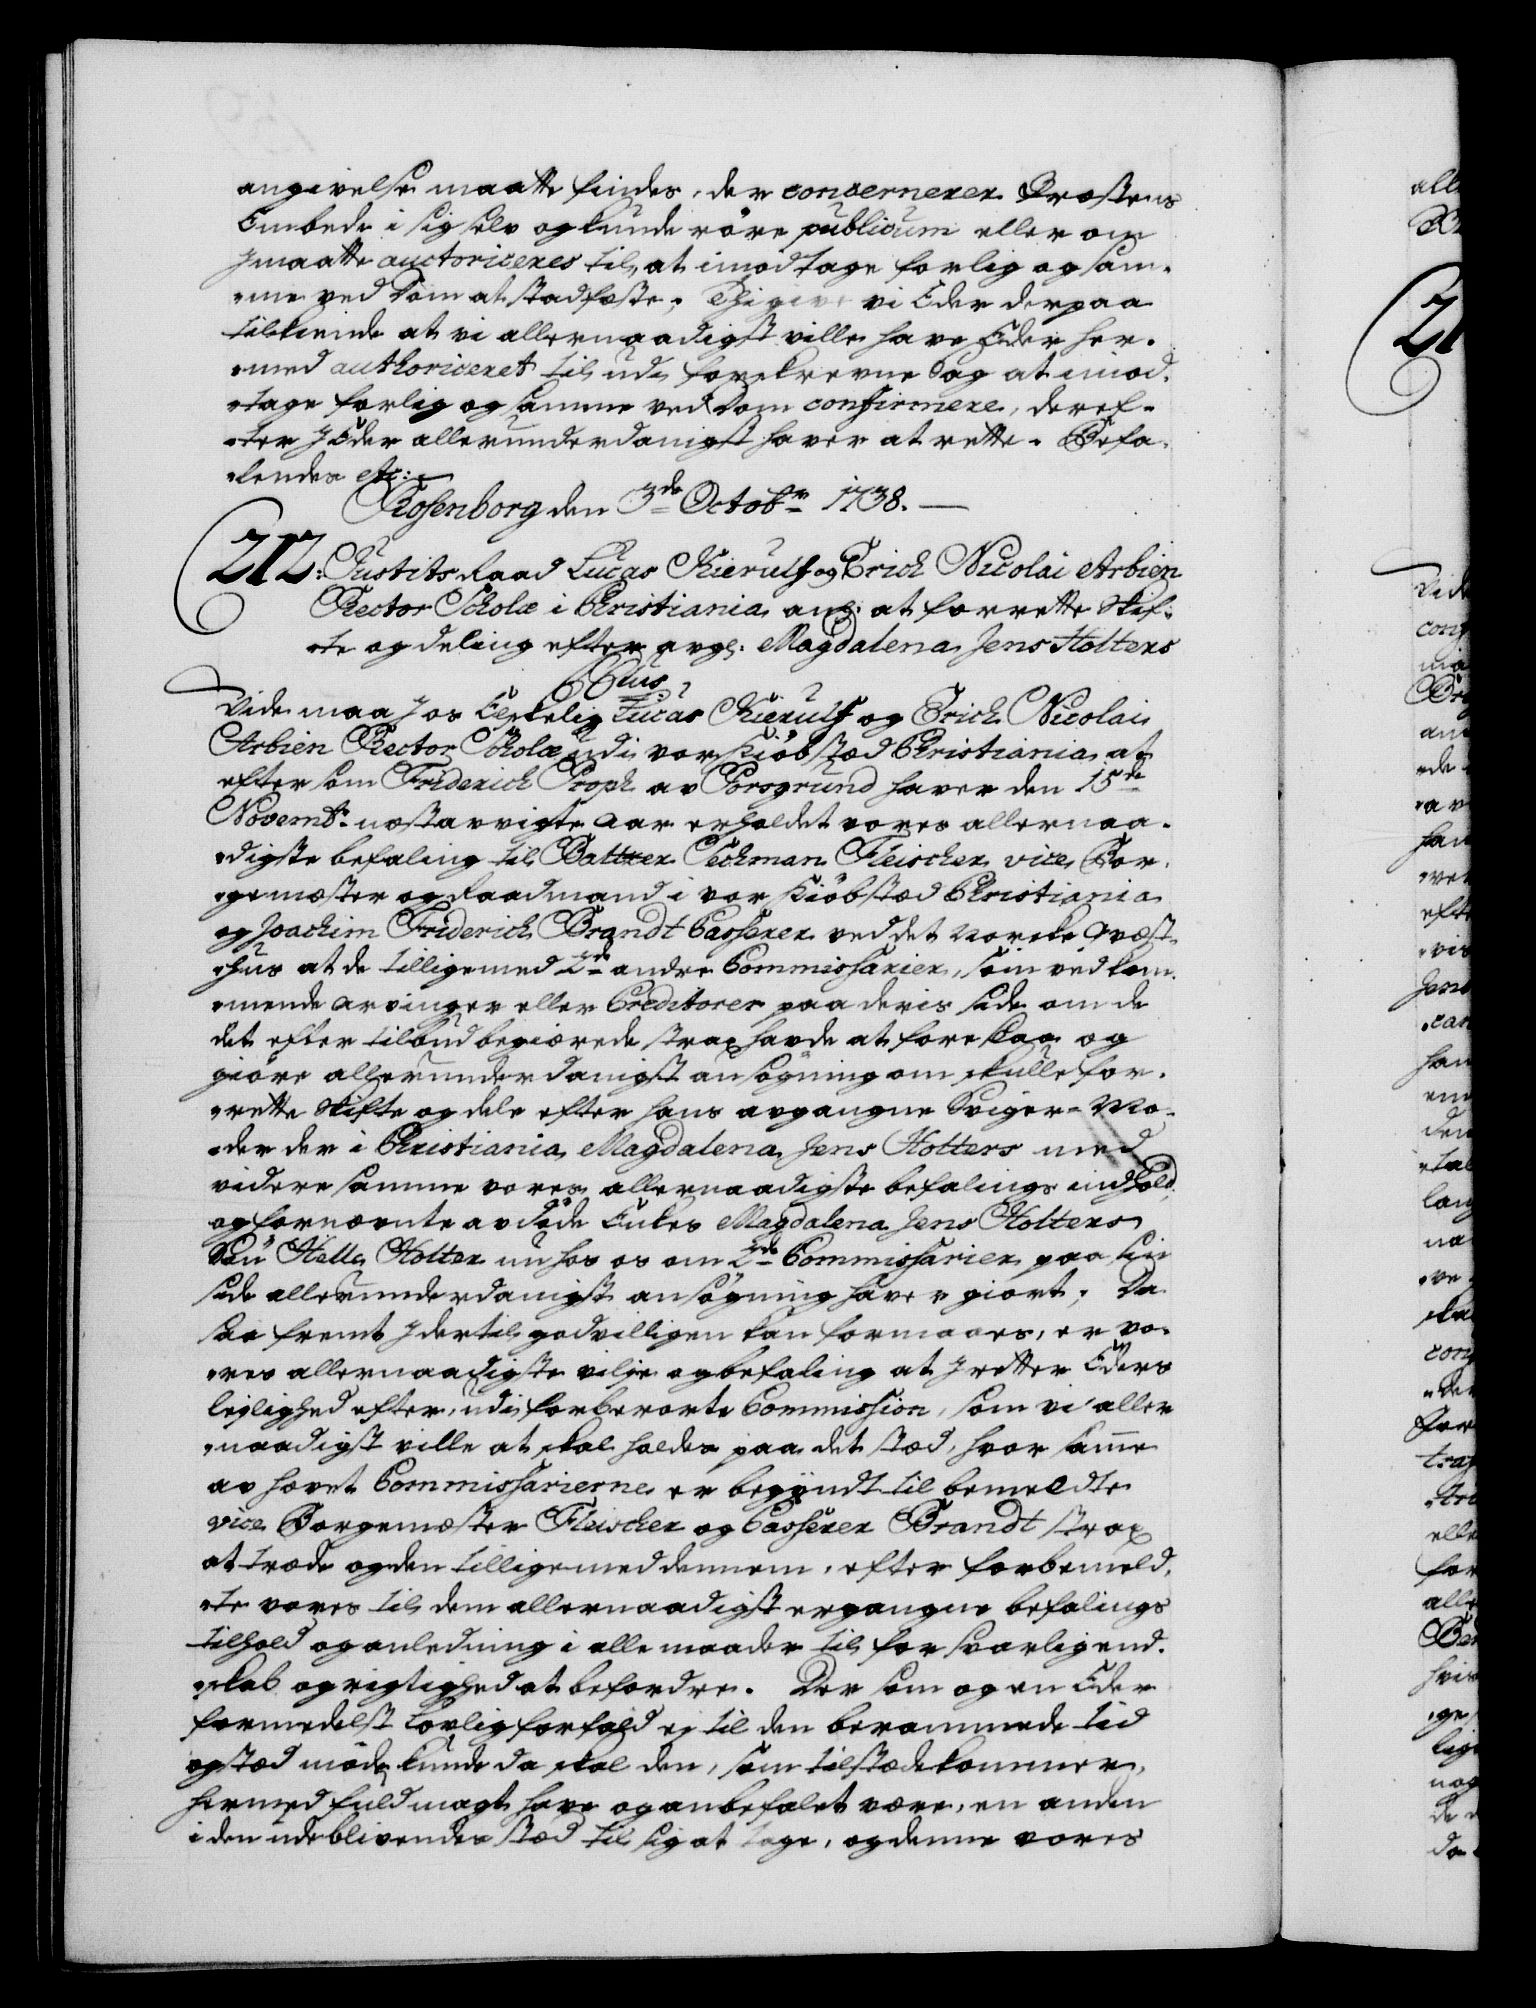 angivelse maatte findes, der concernerer Provstens
Embede i sig selv og kunde röre publicum eller om
I maatte auctoriceres til, at imodtage forlig og sam-
me ved Dom at stadfæste; Thi give vi Eder derpaa
tilkiende at vi allernaadigst ville have Eder her-
med authoriceret til udi forskrevne Sag at imod-
tage forlig og samme ved Dom confirmere, deref-
ter I Eder allerunderdanigst haver at rette. Befa-
lendes etc:
Rosenborg den 3de Octobr 1738.
212: Justits Raad Lucas Kierulf og Erich Nicolai Arbien
Rector Scholæ i Christiania ang: at forrette Skif-
te og deling efter avg: Magdalena Jens Holters
C6tus
Vide maa I os Elskelig Lucas Kierulf og Erich Nicolai
Arbien Rector Scholæ udi vor Kiöbstæd Christiania at
efter som Friderich Proph av Porsgrund haver den 15de
Novembr næstavvigte Aar erholdet vores allernaa-
digste befaling til Baltzer Sechman Fleischer vice Bor-
gemæster og Raadmand i vor Kiöbstæd Christiania
og Joachim Friderich Brandt Casserer ved det Norske Qvæst-
huus at de tilligemed 2de andre Commissarier, som vedkom-
mende arvinger eller Creditorer paa deris side om de
det efter tilbud begiærede strax havde at foreslaa og
giöre allerunderdanigst ansögning om skulle for-
rette Skifte og dele efter hans avgangne Sviger-Mo-
der der i Christiania Magdalena Jens Holters med
videre samme vores allernaadigste befalings indhold
og fornævnte avdöde Enkes Magdalena Jens Holters
Sön Helle Holter nu hos os om 2de Commissarier paa sin
side allerunderdanigst ansögning haver giort; Da
saa fremt I dertil godvilligen kan formaaes, er vo-
res allernaadigste vilje og befaling at I retter Eders
lejlighed efter, udi forberörte Commission, som vi aller-
naadigst ville at skal holdes paa det stæd, hvor samme
av hovet Commissarierne er begyndt til bemeldte
vice Borgemæster Fleischer og Casserer Brandt strax
at træde og den tilligemed dennem, efter forbemeld-
te vores til dem allernaadigst ergangne befalings
tilhold og anledning i alle maader til forsvarlig end-
skab og rigtighed at befordre. Der som og en Eder
formedelst lovlig forfald ej til den berammede tid
og stæd möde kunde da skal den, som tilstæde kommer,
hermed fuldmagt have og anbefalet være, en anden
i den udeblivendes stæd til sig at tage, og denne vores